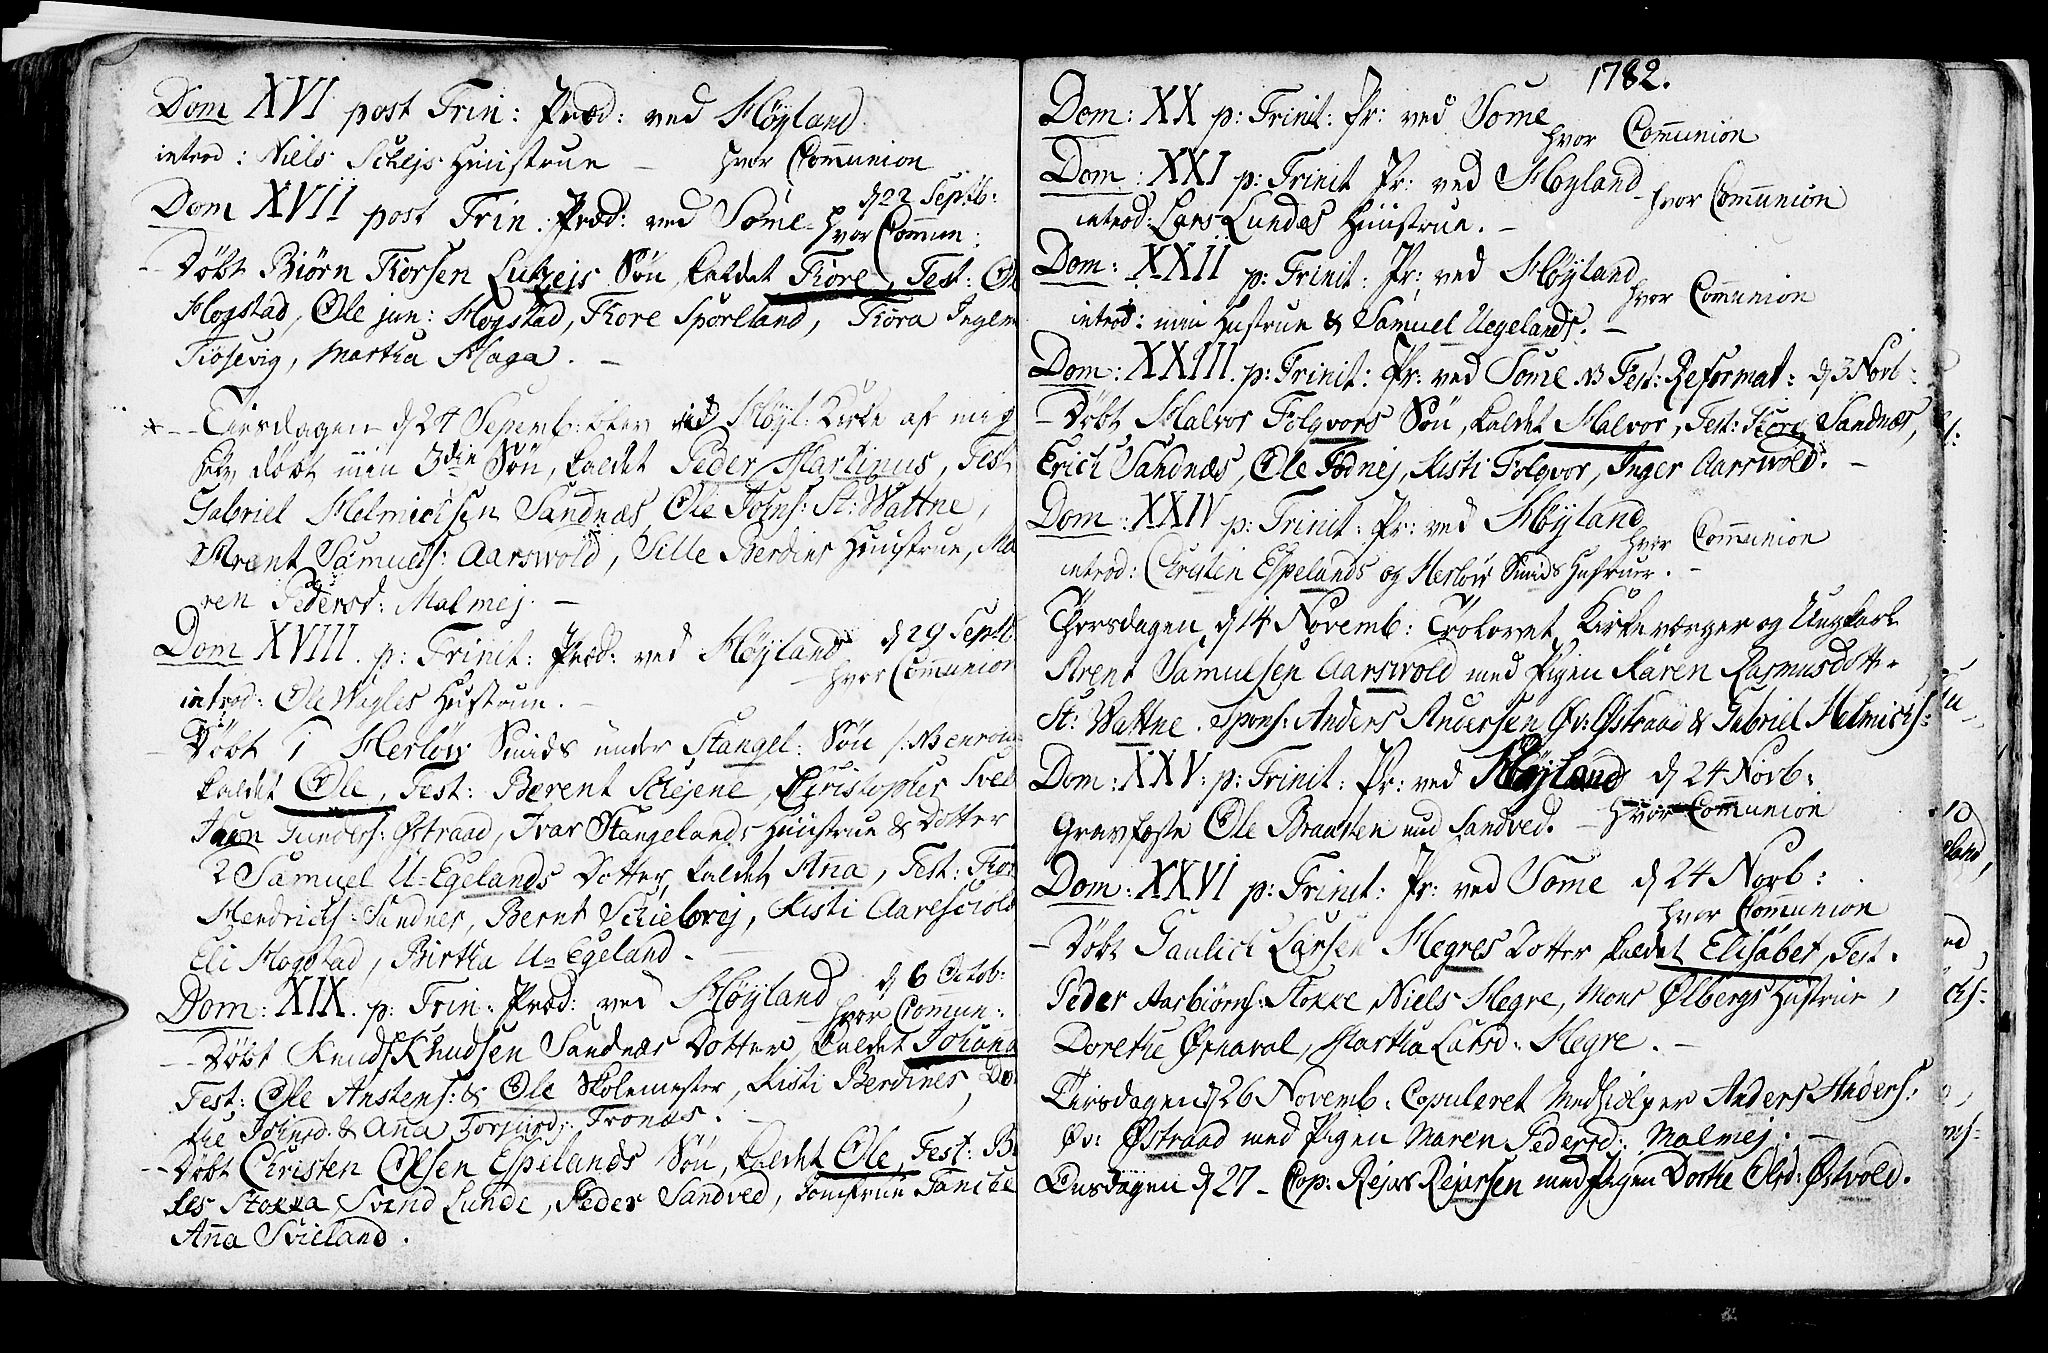 Dom XVI post Trin: Præd: ved Höyland
introd: Niels Schejs Huustrue — hvor Communion
Dom XVII post Trin. Præd: ved Some d 22 Septb:
hvor Commun:
Döbt Biörn Tiorsen Lutzejs Sön, kaldet Tiore, Test:
Hogstad, Ole jun: Hogstad, Tore Sporland, Tora Ingem
Tiosevig, Martha Haga. —
Tiirsdagen d 24 Sepemb: blev ved Höyl: Kirke af mig
selv döbt min 3die Sön, kaldet Peder Martinus, Test
Gabriel Helmichsen Sandnæs, Ole Johns: St: Wattne,
Arent Samuels: Aarswold, Sille Berdines Huustrue, Ma
ren Pedersd: Malmej. —
Dom XVIII. p: Trinit: Præd: ved Höyland d 29 Septb
hvor Communion
introd: Ole Wagles Hustrue. —
Döbt 1 Herlöv Smids under Stangel: Sön
kaldet Ole, Test: Berent Schejene, Christopher Sveb
Gunders: Östraad, Ivar Stangelands Huustrue & Dotter
2 Samuel U-Egelands Dotter kaldet Anna, Test: Tor
Hendrichs: Sandnes, Bernt Schielovej, Kisti Aareschiold
Eli Hogstad, Birtha U-Egeland. —
Dom: XIX. p: Trin: Præd: ved Höyland d 6 Octob:
hvor Commun:
Döbt Knud Knudsen Sandnæs Dotter, kaldet Johana
Test: Ole Anstens: & Ole Skolemester, Kisti Berdines, Do
the Johnsd: & Anna Tronæs.
Döbt Christen Olsen Espelands Sön, kaldet Ole, Test: B
les Stokka, Svend Lunde, Peder Sandved, Jomfrue
Anna Svieland.
1782.
Dom: XX p: Trinit: Pr: ved Some
hvor Communion
Dom: XXI p: Trinit Pr: ved Höyland
hvor Communion
introd: Lars Lundes Huustrue. —
Dom: XXII p: Trinit: Pr: ved Höyland
hvor Communion
introd: min Hustrue & Samuel Uegelands. —
Dom: XXIII. p: Trinit: Pr: ved Some NB Fest: Reformat: d 3 Novb:
Döbt Halvor Folqvors Sön, kaldet Halvor, Test: Tore Sandnæs,
Erich Sandnæs, Ole Todnej, Kisti Folqvor, Inger Aarswold. —
Dom: XXIV p: Trinit: Pr: ved Höyland
hvor Communion
introd: Christen Espelands og Herlöv Smids Hustruer. —
Thorsdagen d 14 Novemb: Trolovet Kirkeværger og Ungkarl
Arent Samuelsen Aarswold med Pigen Karen Rasmusdott.
St: Wattne. Spons: Anders Andersen Öv: Östraad & Gabriel Helmichs:
Dom: XXV: p: Trinit: Pr: ved Höyland d 24 Novb:
hvor Communion
Gravfæste Ole Braasten Sandved. —
Dom: XXVI p: Trinit: Pr: ved Some d 24 Novb:
hvor Communion
Döbt Gaulich Larsen Hegres Dotter kaldet Elisabet, Test.
Peder Aasbiörns: Stokke, Niels Hegre, Mons Ölbergs Hustrue,
Dorethe Örnaval, Martha Larsd: Hegre. —
Tiirsdagen d 26 Novemb: Copuleret Medhielper Anders Anders:
Öv: Östraad med Pigen Maren Pedersd: Malmej. —
Onsdagen d 27 - Cop: Rejer Rejersen med Pigen Dorthe Olsd: Östvold.